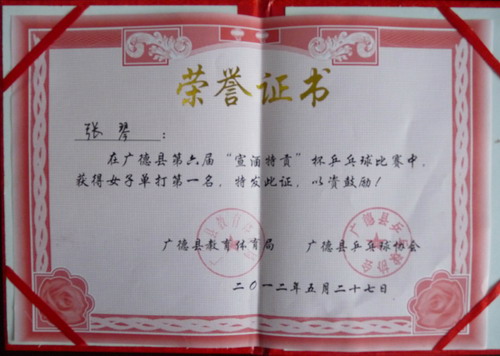 荣誉证书
张琴：
在广德县第六届“宣酒特贡”杯乒乓球比赛中，
获得女子单打第一名，特发此证，以资鼓励！
广德县教育体育局 广德县乒乓球协会
二〇一二年五月二十七日